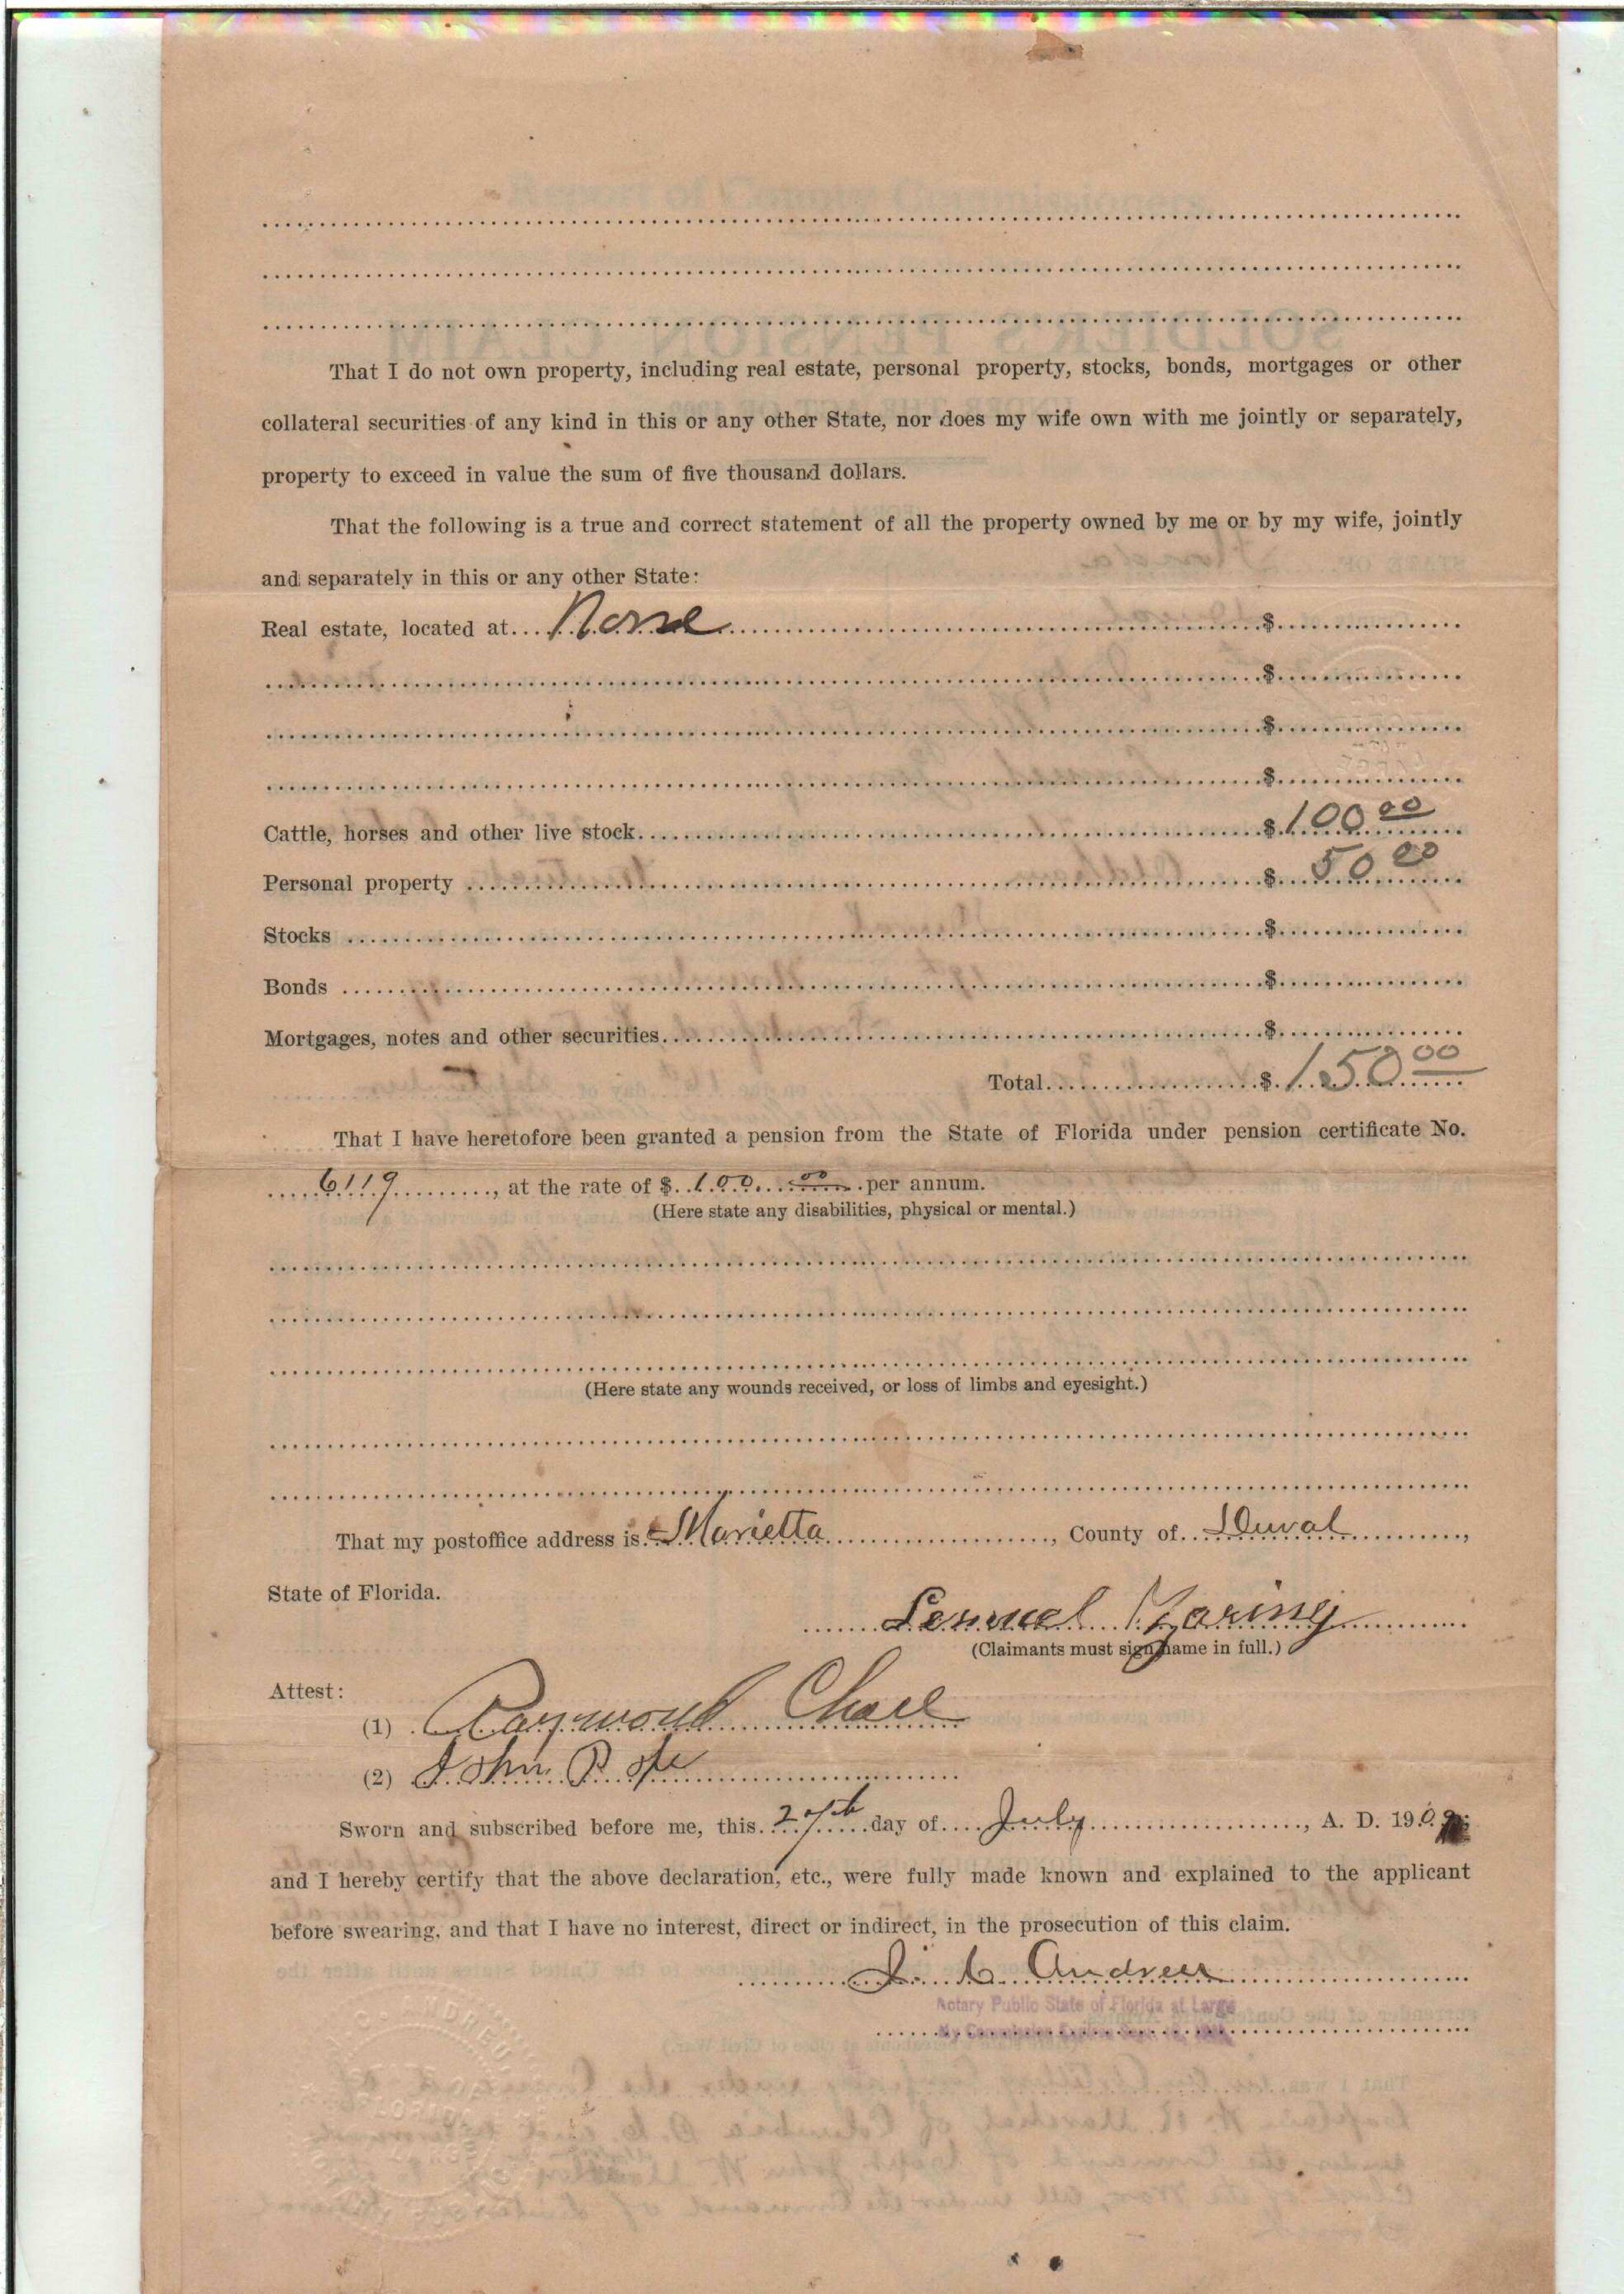 That I do not own property, including real estate, personal property, stocks, bonds, mortgages or other
collateral securities of any kind in this or any other State, nor does my wife own with me jointly or separately,
property to exceed in value the sum of five thousand dollars.
That the following is a true and correct statement of all the property owned by me or by my wife, jointly
and separately in this or any other State:
Real estate, located at None $
$
$
$
Cattle, horses and other live stock $100 00
Personal property $50 00
Stocks $
Bonds $
Mortgages, notes and other securities $
Total $150 00
That I have heretofore been granted a pension from the State of Florida under pension certificate No.
6119, at the rate of $100 00 per annum.
(Here state any disabilities, physical or mental.)
(Here state any wounds received, or loss of limbs and eyesight.)
That my postoffice address is Marietta, County of Duval,
State of Florida.
Lemuel Zaring
(Claimants must sign name in full.)
Attest:
(1) Raymond
(2) John Pope
Sworn and subscribed before me, this 27th day of July, A. D. 1909
and I hereby certify that the above declaration, etc., were fully made known and explained to the applicant
before swearing, and that I have no interest, direct or indirect, in the prosecution of this claim.
Andreu
Notary Public State of Florida at Large
My Commission Expires